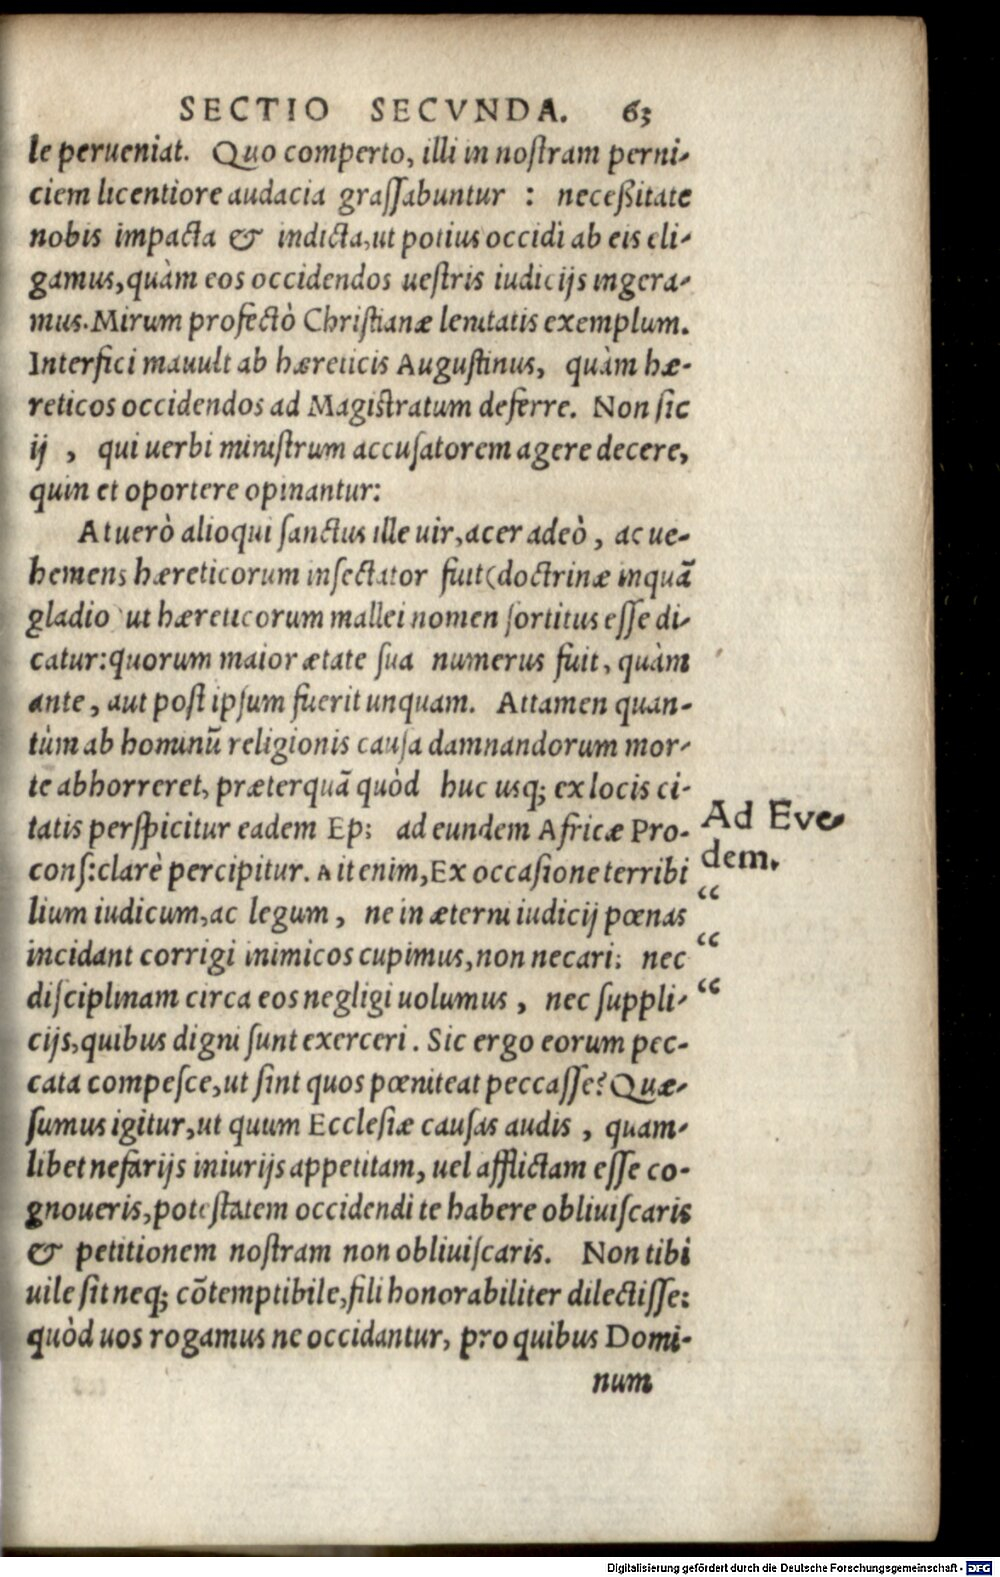 SECTIO SECVNDA. 63
le perueniat. Quo comperto, illi in noſtram perni-
ciem licentiore audacia graſſabuntur : neceßitate
nobis impacta & indicta, ut potius occidi ab eis eli-
gamus, quàm eos occidendos ueſtris iudicijs ingera-
mus. Mirum profectò Chriſtianæ lenitatis exemplum.
Interfici mauult ab hæreticis Auguſtinus, quàm hæ-
reticos occidendos ad Magiſtratum deferre. Non ſic
ij , qui uerbi miniſtrum accuſatorem agere decere,
quin et oportere opinantur:
At uerò alioqui ſanctus ille uir, acer adeò, ac ue-
hemens hæreticorum inſectator fuit (doctrinæ inquā
gladio) ut hæreticorum mallei nomen ſortitus eſſe di-
catur: quorum maior ætate ſua numerus fuit, quàm
ante, aut poſt ipſum fuerit unquam. Attamen quan-
tùm ab hominū religionis cauſa damnandorum mor-
te abhorreret, præterquā quòd huc usq; ex locis ci-
tatis perſpicitur eadem Ep: ad eundem Africæ Pro-
conſ: clarè percipitur. Ait enim, Ex occaſione terribi
lium iudicum, ac legum, ne in æterni iudicij pœnas
incidant corrigi inimicos cupimus, non necari: nec
diſciplinam circa eos negligi uolumus, nec ſuppli-
cijs, quibus digni ſunt exerceri. Sic ergo eorum pec-
cata compeſce, ut ſint quos pœniteat peccaſſe? Quæ-
ſumus igitur, ut quum Eccleſiæ cauſas audis, quam-
libet nefarijs iniurijs appetitam, uel afflictam eſſe co-
gnoueris, poteſtatem occidendi te habere obliuiſcaris
& petitionem noſtram non obliuiſcaris. Non tibi
uile ſit neq; cōtemptibile, fili honorabiliter dilectiſſe:
quòd uos rogamus ne occidantur, pro quibus Domi-
num
Ad Eve
dem.
“
“
“
Digitalisierung gefördert durch die Deutsche Forschungsgemeinschaft - DFG